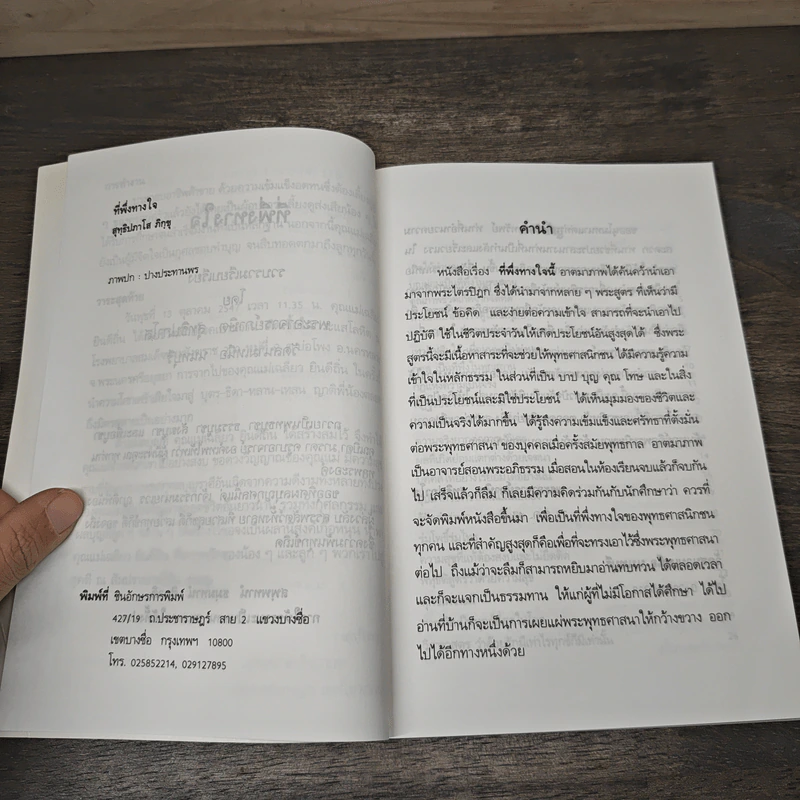 ที่พึ่งทางใจ
สุทฺธิปภาโส ภิกฺขุ
ภาพปก : ปางประทานพร
พิมพ์ที่ ชินอักษรการพิมพ์
427/19 ถ.ประชาราษฎร์ สาย 2 แขวงบางซื่อ
เขตบางซื่อ กรุงเทพฯ 10800
โทร. 025852214, 029127895
คำนำ
หนังสือเรื่อง ที่พึ่งทางใจนี้ อาตมาภาพได้ค้นคว้านำเอา
มาจากพระไตรปิฎก ซึ่งได้นำมาจากหลาย ๆ พระสูตร ที่เห็นว่ามี
ประโยชน์ ข้อคิด และง่ายต่อความเข้าใจ สามารถที่จะนำเอาไป
ปฏิบัติ ใช้ในชีวิตประจำวันให้เกิดประโยชน์อันสูงสุดได้ ซึ่งพระ
สูตรนี้จะมีเนื้อหาสาระที่จะช่วยให้พุทธศาสนิกชน ได้มีความรู้ความ
เข้าใจในหลักธรรม ในส่วนที่เป็น บาป บุญ คุณ โทษ และในสิ่ง
ที่เป็นประโยชน์และมิใช่ประโยชน์ ได้เห็นมุมมองของชีวิตและ
ความเป็นจริงได้มากขึ้น ได้รู้ถึงความเข้มแข็งและศรัทธาที่ตั้งมั่น
ต่อพระพุทธศาสนา ของบุคคลเมื่อครั้งสมัยพุทธกาล อาตมาภาพ
เป็นอาจารย์สอนพระอภิธรรม เมื่อสอนในห้องเรียนจบแล้วก็จบกัน
ไป เสร็จแล้วก็ลืม ก็เลยมีความคิดร่วมกันกับนักศึกษาว่า ควรที่
จะจัดพิมพ์หนังสือขึ้นมา เพื่อเป็นที่พึ่งทางใจของพุทธศาสนิกชน
ทุกคน และที่สำคัญสูงสุดก็คือเพื่อที่จะทรงเอาไว้ซึ่งพระพุทธศาสนา
ต่อไป ถึงแม้ว่าจะลืมก็สามารถหยิบมาอ่านทบทวน ได้ตลอดเวลา
และก็จะแจกเป็นธรรมทาน ให้แก่ผู้ที่ไม่มีโอกาสได้ศึกษา ได้ไป
อ่านที่บ้านก็จะเป็นการเผยแผ่พระพุทธศาสนาให้กว้างขวาง ออก
ไปได้อีกทางหนึ่งด้วย